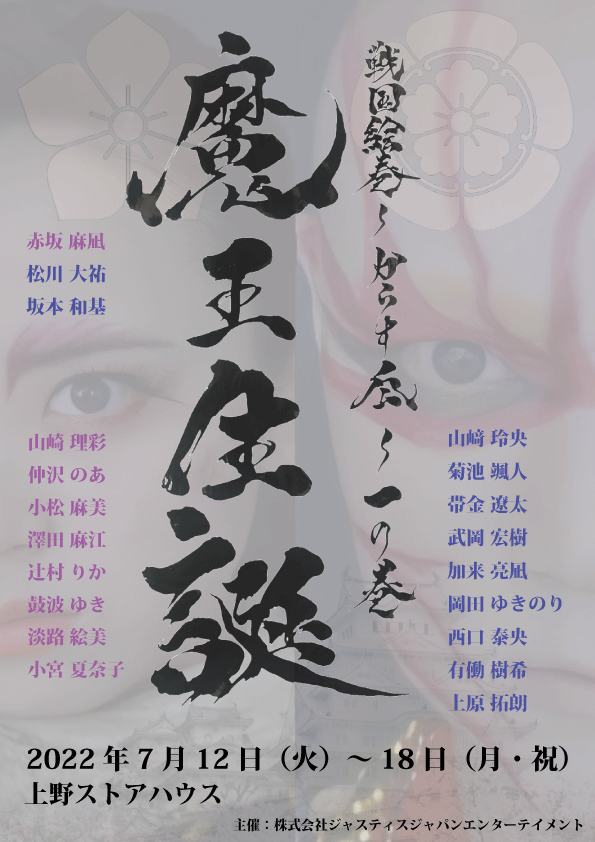 戦国絵巻〜からす風〜一の巻
魔王生誕
赤坂 麻凪
松川 大祐
坂本 和基
山崎 理彩
仲沢 のあ
小松 麻美
澤田 麻江
辻村 りか
鼓波 ゆき
淡路 絵美
小宮 夏奈子
山﨑 玲央
菊池 颯人
帯金 遼太
武岡 宏樹
加来 亮凪
岡田 ゆきのり
西口 泰央
有働 樹希
上原 拓朗
2022年7月12日（火）～18日（月・祝）
上野ストアハウス
主催：株式会社ジャスティスジャパンエンターテイメント